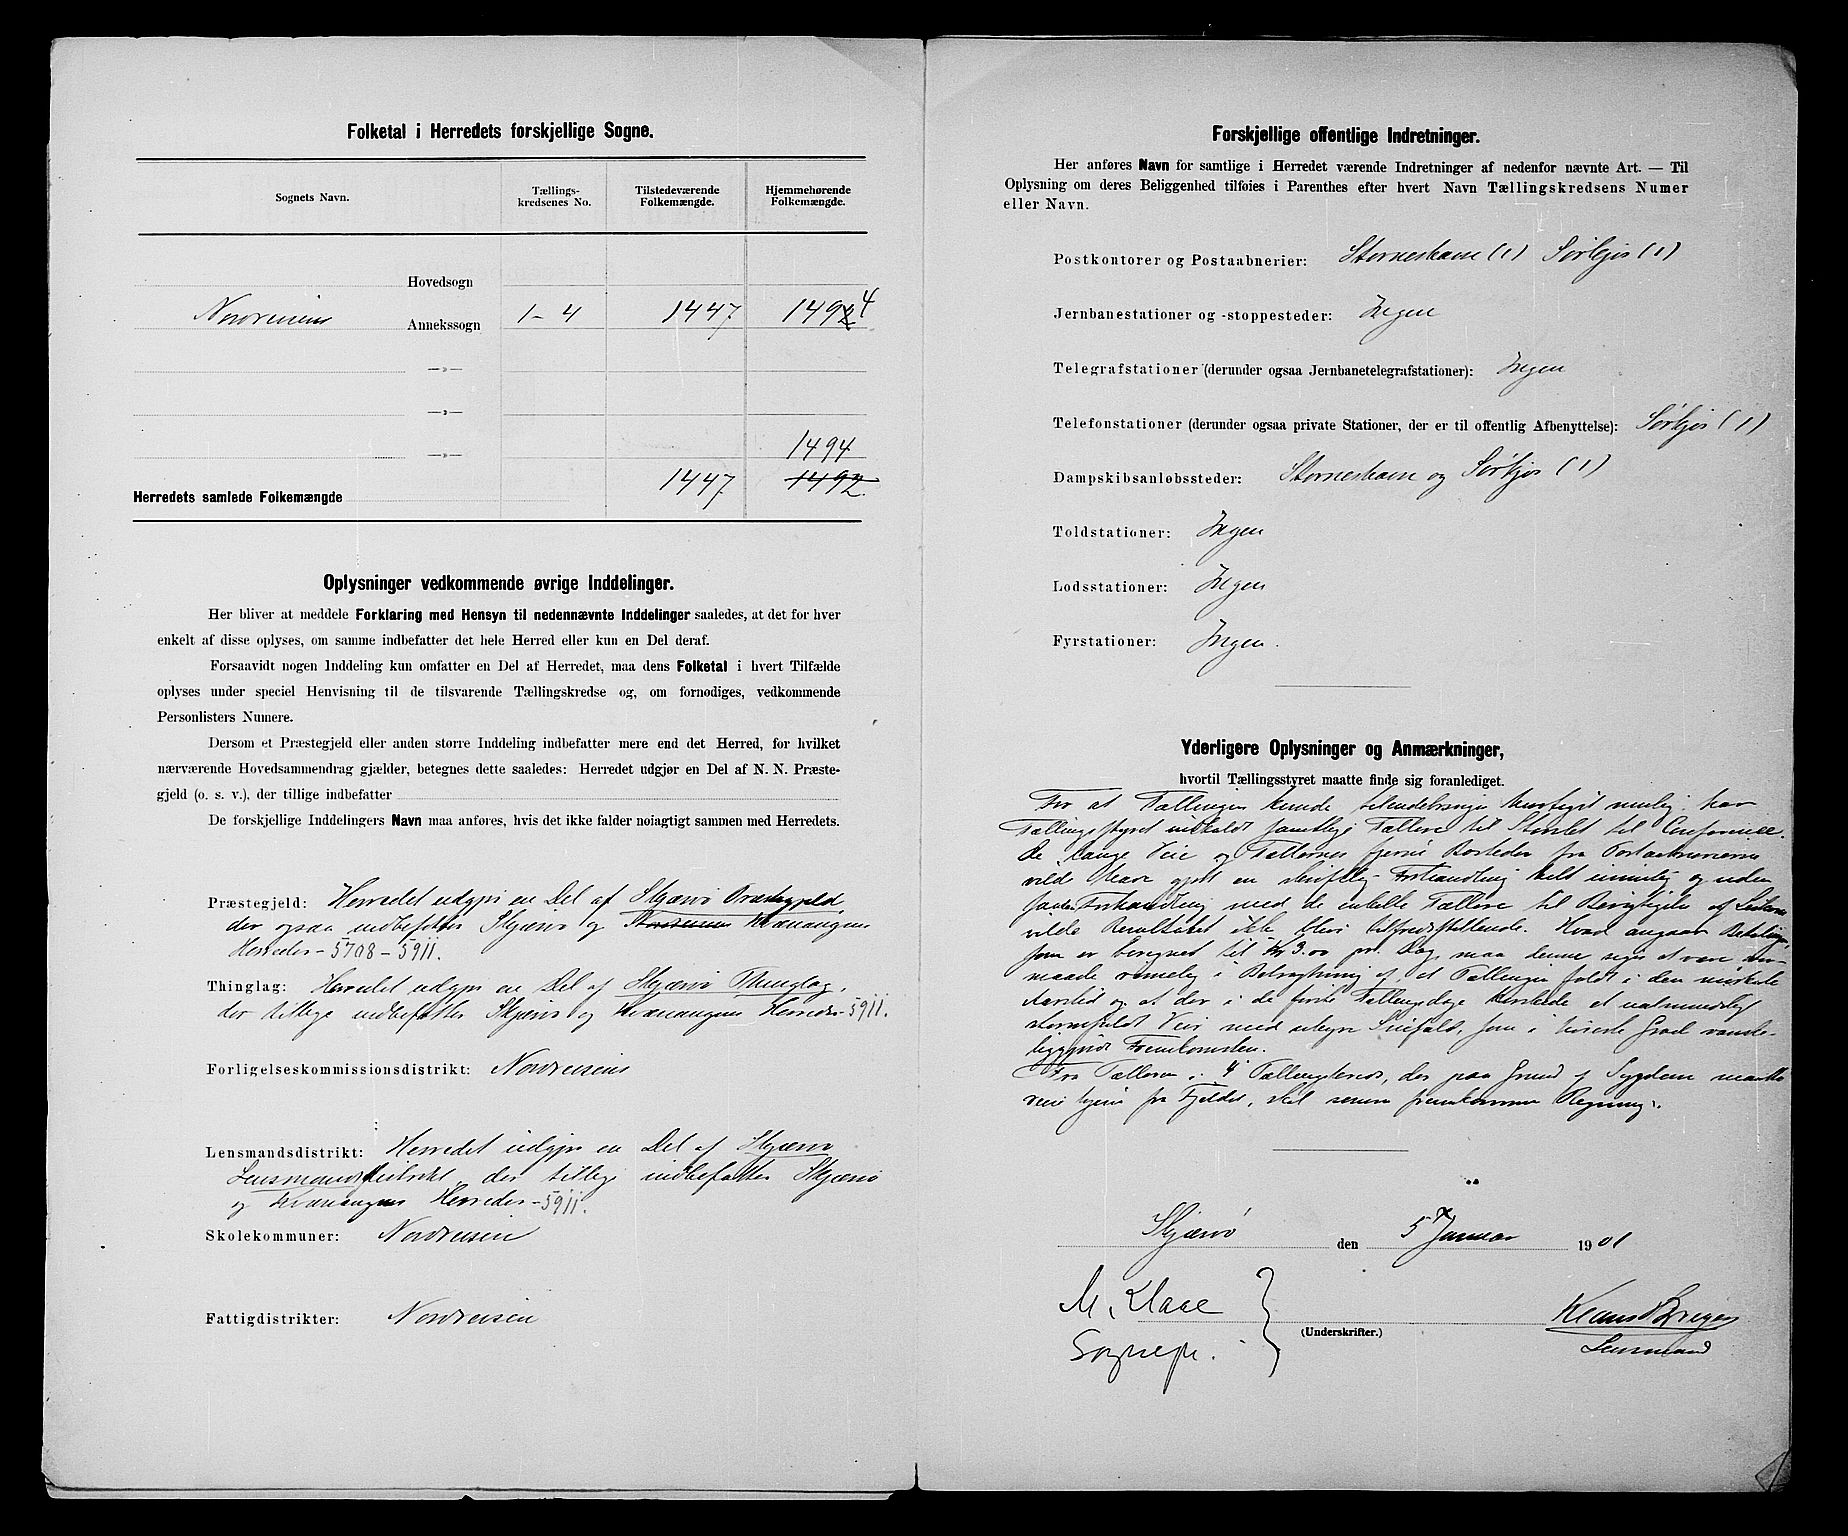 Folketal i Herredets forskjellige Sogne.
Sognets Navn.
Tællings-
kredsenes No.
Tilstedeværende
Folkemængde.
Hjemmehørende
Folkemængde.
Hovedsogn
Nordreisens Annekssogn 1-4 1447. 1492 4
—»—
—»—
1494
—»—
Herredets samlede Folkemængde 1447. 1492.
Oplysninger vedkommende øvrige Inddelinger.
Her bliver at meddele Forklaring med Hensyn til nedennævnte Inddelinger saaledes, at det for hver
enkelt af disse oplyses, om samme indbefatter det hele Herred eller kun en Del deraf.
Forsaavidt nogen Inddeling kun omfatter en Del af Herredet, maa dens Folketal i hvert Tilfælde
oplyses under speciel Henvisning til de tilsvarende Tællingskredse og, om fornødiges, vedkommende
Personlisters Numere.
Dersom et Præstegjeld eller anden større Inddeling indbefatter mere end det Herred, for hvilket
nærværende Hovedsammendrag gjælder, betegnes dette saaledes: Herredet udgjør en Del af N. N. Præste-
gjeld (o. s. v.), der tillige indbefatter
De forskjellige Inddelingers Navn maa anføres, hvis det ikke falder nøiagtigt sammen med Herredets.
Præstegjeld: Herredet udgjør en Del af Skjærvø Præstegjeld
der ogsaa indbefatter Skjærvø og Nordreisens Kvænangens
Herreder - 5708 - 5911.
Thinglag: Herredet udgjør en Del af Skjærvø Thinglag,
der tillige indbefatter Skjærvø og Kvænangens Herreder - 5911.
Forligelseskommissionsdistrikt: Nordreisens
Lensmandsdistrikt: Herredet udgjør en Del af Skjærvø
Lensmandsdistrikt, der tillige indbefatter Skjærvø
og Kvænangens Herreder - 5911.
Skolekommuner: Nordreisen
Fattigdistrikter: Nordreisen
Forskjellige offentlige Indretninger.
Her anføres Navn for samtlige i Herredet værende Indretninger af nedenfor nævnte Art. — Til
Oplysning om deres Beliggenhed tilføies i Parenthes efter hvert Navn Tællingskredsens Numer
eller Navn.
Postkontorer og Postaabnerier: Storneshavn (1) Sørkjos (1)
Jernbanestationer og -stoppesteder: Ingen
Telegrafstationer (derunder ogsaa Jernbanetelegrafstationer): Ingen
Telefonstationer (derunder ogsaa private Stationer, der er til offentlig Afbenyttelse): Sørkjos (1)
Dampskibsanløbssteder: Storneshavn og Sørkjos (1)
Toldstationer: Ingen
Lodsstationer: Ingen
Fyrstationer: Ingen.
Yderligere Oplysninger og Anmærkninger,
hvortil Tællingsstyret maatte finde sig foranlediget.
For at Tællingen kunde tilendebringes hurtigst mulig, har
Tællingsstyret indkaldt samtlige Tællere til Storslet til Conference.
De lange Veie og Tællernes fjerne Bosteder fra Postaabnerierne
vilde have gjort en skriftlig Forhandling helt umulig og uden
saadan Forhandling med de enkelte Tællere til Berigtigelse af Listerne
vilde Resultatet ikke blevet tilfredsstillende. Hvad angaar Betalingen,
som er beregnet til Kr 3.00 pr. Dag, maa denne siges at være
maade rimelig i Betragtning af, at Tællingen faldt i den mørkeste
Aarstid og at der i de første Tællingsdage herskede et ualmindelig
stormfuldt Veir med Snefald, som i høieste Grad vanske-
liggjorde Fremkomsten.
Fra Tælleren i 4 Tællingskreds, der paa Grund af Sygdom maatte
reise hjem fra Fjeldet, skal senere fremkomme Regning.
Skjærvø den 5 Januar 1901
M. Klaae
Sognepr.
(Underskrifter.)
Lensmand